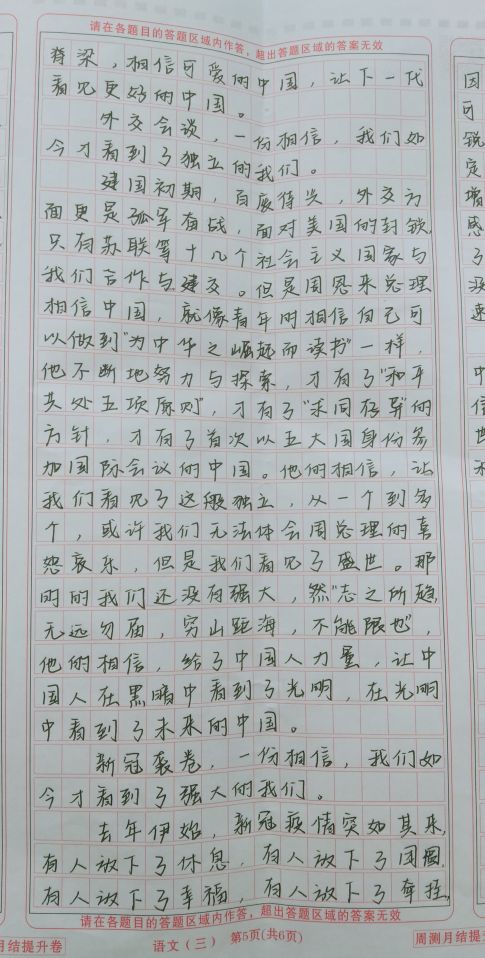 请在各题目的答题区域内作答，超出答题区域的答案无效
脊梁，相信可爱的中国，让下一代
看见更好的中国。
外交会谈，一份相信，我们如
今才看到了独立的我们。
建国初期，百废待兴，外交方
面更是孤军奋战，面对美国的封锁，
只有苏联等十几个社会主义国家与
我们合作与建交。但是周恩来总理
相信中国，就像青年时相信自己可
以做到"为中华之崛起而读书"一样，
他不断地努力与探索，才有了"和平
共处五项原则"，才有了"求同存异"的
方针，才有了首次以五大国身份参
加国际会议的中国。他的相信，让
我们看见了这般独立，从一个到多
个，或许我们无法体会周总理的喜
怒哀乐，但是我们看见了盛世。那
时的我们还没有强大，然"志之所趋，
无远勿届，穷山距海，不能限也"，
他的相信，给了中国人力量，让中
国人在黑暗中看到了光明，在光明
中看到了未来的中国。
新冠袭卷，一份相信，我们如
今才看到了强大的我们。
去年伊始，新冠疫情突如其来，
有人放下了休息，有人放下了团圆，
有人放下了幸福，有人放下了牵挂，
请在各题目的答题区域内作答，超出答题区域的答案无效
月结提升卷
语文（三） 第5页(共6页)
周测月结提升卷
因
可
锐
定
增
感
了
没
速
中
信
世